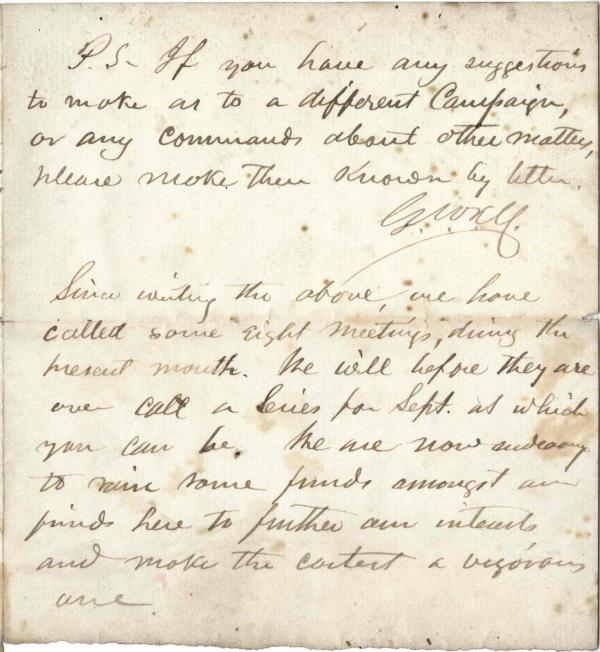 P.S. If you have any suggestions
to make as to a different Campaign,
or any commands about other matters,
please make them known by letter.
Since writing the above, we have
called some eight meetings, during the
present month. We will before they are
over call a Series for Sept. at which
you can be. We are now endeavoring
to raise some funds amongst our
friends here to further our interests
and make the contest a vigorous
one.